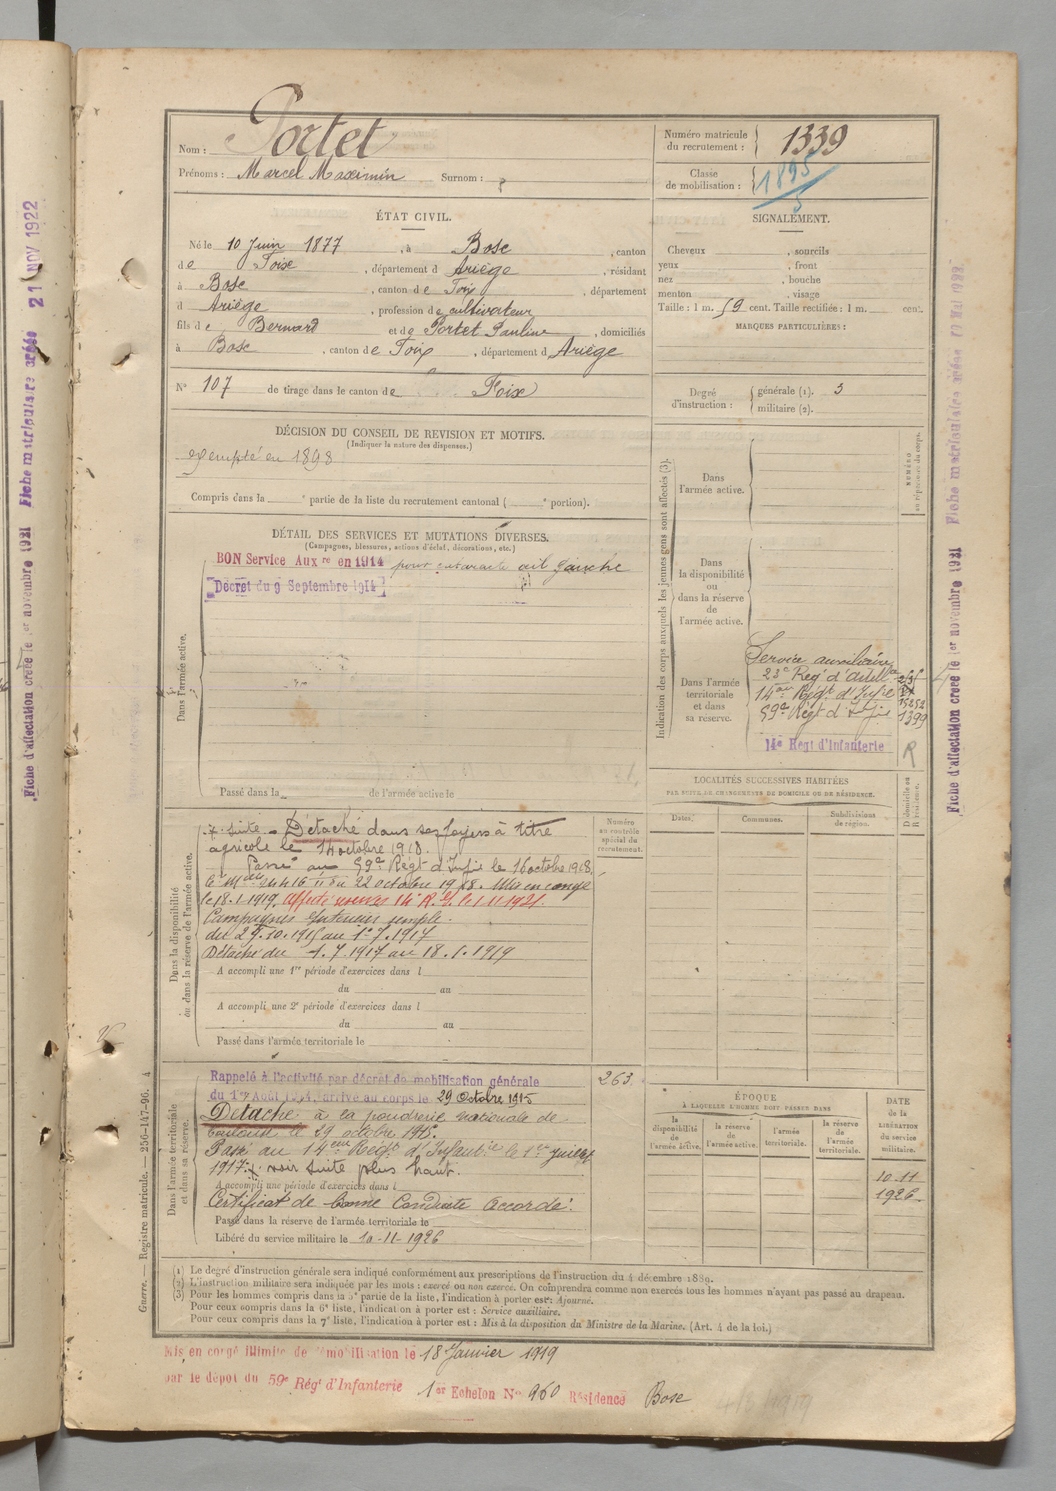 Nom : Portet
Prénoms : Marcel Maxemin Surnom :
Numéro matricule du recrutement : 1339
Classe de mobilisation : 1895
5
ÉTAT CIVIL.
Né le 10 Juin 1877, à Bosc, canton
de Foix, département d Ariège, résidant
à Bosc, canton de Foix, département
d Ariège, profession de cultivateur
fils de Bernard et de Portet Pauline, domiciliés
à Bosc, canton de Foix, département d Ariège
N° 107 de tirage dans le canton de Foix
SIGNALEMENT.
Cheveux , sourcils
yeux , front
nez , bouche
menton , visage
Taille : 1 m. 59 cent. Taille rectifiée : 1 m. cent.
MARQUES PARTICULIÈRES :
Degré d'instruction : générale (1). 3
militaire (2).
DÉCISION DU CONSEIL DE REVISION ET MOTIFS.
(Indiquer la nature des dispenses.)
exempté en 1898
Compris dans la e partie de la liste du recrutement cantonal ( e portion).
DÉTAIL DES SERVICES ET MUTATIONS DIVERSES.
(Campagnes, blessures, actions d'éclat, décorations, etc.)
BON Service Aux re en 1914 pour cataracte œil gauche
Décret du 9 Septembre 1914
Dans l'armée active.
Passé dans la de l'armée active le
Indication des corps auxquels les jeunes gens sont affectés (3).
NUMÉRO au répertoire du corps.
Dans l'armée active.
Dans la disponibilité ou dans la réserve de l'armée active.
Dans l'armée territoriale et dans sa réserve.
Service auxiliaire
23e Regt d'artill
14me Regt d'Infie
59e Régt d'Infie
1399
14e Régt d'Infanterie
R
LOCALITÉS SUCCESSIVES HABITÉES
PAR SUITE DE CHANGEMENTS DE DOMICILE OU DE RÉSIDENCE.
Dates. Communes. Subdivisions de région. D domicile ou R résidence.
Dans la disponibilité ou dans la réserve de l'armée active.
Numéro au contrôle spécial du recrutement.
suite - Détaché dans ses foyers à titre
agricole le 14 octobre 1918.
Passé au 59e Régt d'Infie le 16 octobre 1918,
22 octobre 1918. Mis en congé
le 18.1.1919. Affecté réserves 14e R.I. le 1.11.1921.
Campagnes Intérieur simple.
du 29.10.1915 au 1er.7.1917
Détaché du 1.7.1917 au 18.1.1919
A accompli une 1re période d'exercices dans l
du au
A accompli une 2e période d'exercices dans l
du au
Passé dans l'armée territoriale le
Dans l'armée territoriale et dans sa réserve.
Rappelé à l'activité par décret de mobilisation générale
du 1er Août 1914, arrivé au corps le 29 Octobre 1915
263
Détaché à la poudrerie nationale de
Toulouse le 29 octobre 1915.
Passé au 14eme Régt d'Infantie le 1er juillet
1917. voir suite plus haut.
A accompli une période d'exercices dans l
Certificat de bonne Conduite Accordé.
Passé dans la réserve de l'armée territoriale le
Libéré du service militaire le 10-11-1926
ÉPOQUE
À LAQUELLE L'HOMME DOIT PASSER DANS
la disponibilité de l'armée active. la réserve de l'armée active. l'armée territoriale. la réserve de l'armée territoriale.
DATE de la LIBÉRATION du service militaire.
10-11
1926
(1) Le degré d'instruction générale sera indiqué conformément aux prescriptions de l'instruction du 4 décembre 1889.
(2) L'instruction militaire sera indiquée par les mots : exercé ou non exercé. On comprendra comme non exercés tous les hommes n'ayant pas passé au drapeau.
(3) Pour les hommes compris dans la 5e partie de la liste, l'indication à porter est : Ajourné.
Pour ceux compris dans la 6e liste, l'indication à porter est : Service auxiliaire.
Pour ceux compris dans la 7e liste, l'indication à porter est : Mis à la disposition du Ministre de la Marine. (Art. 4 de la loi.)
Mis en congé illimité de démobilisation le 18 Janvier 1919
par le dépôt du 59e Régt d'Infanterie 1er Echelon N° 960 Résidence Bosc
Guerre. — Registre matricule. — 256-147-96. 4
Fiche d'affectation créée le 1er novembre 1921 Fiche matriculaire créée 21 NOV 1922
Fiche d'affectation créée le 1er novembre 1921 Fiche matriculaire créée